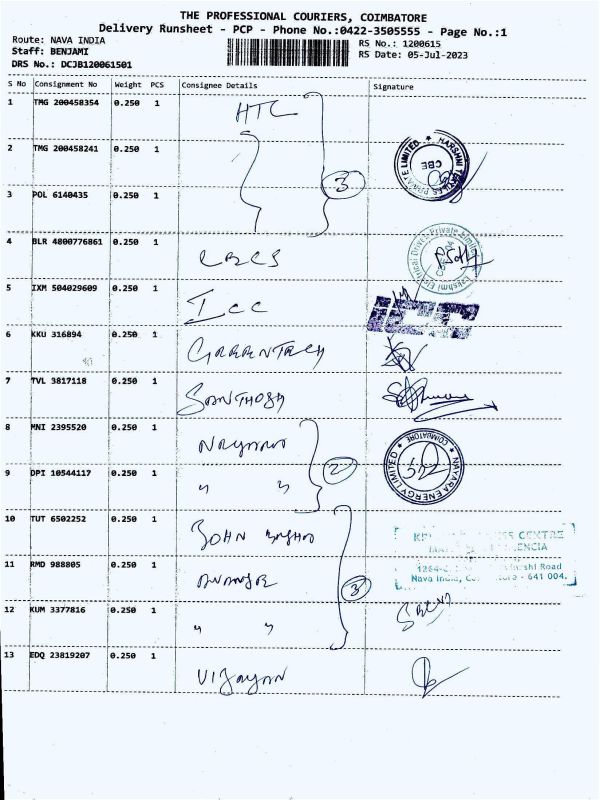 THE PROFESSIONAL COURIERS, COIMBATORE
Delivery Runsheet - PCP - Phone No.:0422-3505555 - Page No.:1
Route: NAVA INDIA
Staff: BENJAMI
DRS No.: DCJB120061501
RS No.: 1200615
RS Date: 05-Jul-2023
S No Consignment No Weight PCS Consignee Details Signature
1 TMG 200458354 0.250 1 HTC
2 TMG 200458241 0.250 1
3 POL 6140435 0.250 1
3
HARSHNI TEXTILES PRIVATE LIMITED
CBE
4 BLR 4800776861 0.250 1
Lakshmi Electrical Drives Private Limited
5 IXM 504029609 0.250 1 ICC
6 KKU 316894 0.250 1 GREENTECH
7 TVL 3817118 0.250 1 SANTHOSH
8 MNI 2395520 0.250 1
9 DPI 10544117 0.250 1 " "
2
NAYARA ENERGY LIMITED
COIMBATORE
10 TUT 6502252 0.250 1
11 RMD 988805 0.250 1
12 KUM 3377816 0.250 1 " "
3
CENTRE
Road
Nava India, - 641 004.
13 EDQ 23819207 0.250 1 VIJAYAN